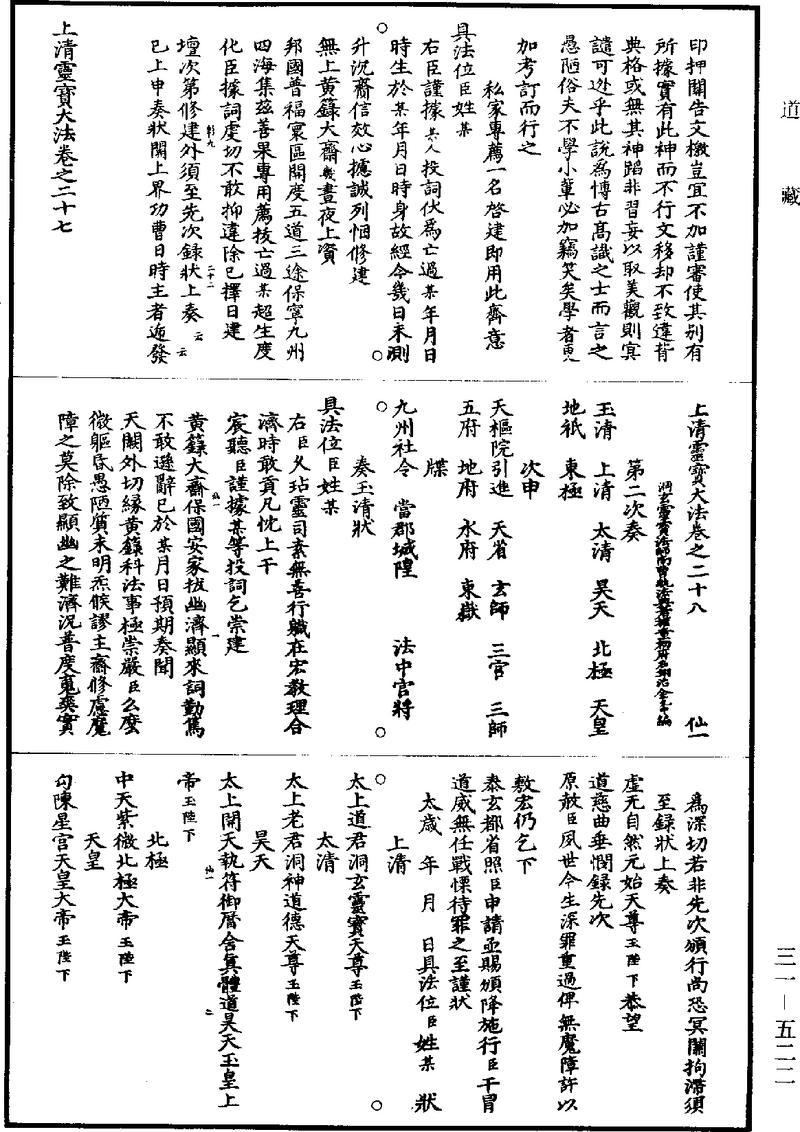 道藏
印押關告文檄豈宜不加謹審使其別有
所據實有此神而不行文移却不致違背
典格或無其神蹈非習妄以取美觀則冥
譴可逃乎此說為博古高識之士而言之
愚陋俗夫不學小輩必加竊笑矣學者更
加考訂而行之
私家專薦一名啓建即用此齋意
具法位臣姓某
右臣謹據某人投詞伏為亡過某年月日
時生於某年月日時身故經今幾日未測
升沉齋信效心攄誠列悃修建
無上黃籙大齋幾晝夜上資
邦國普福寰區開度五道三途保寧九州
四海集茲善果專用薦拔亡過某超生度
化臣據詞虔切不敢抑違除已擇日建
壇次第修建外須至先次錄狀上奏云云
已上申奏狀關上界功曹日時主者遞發
上清靈寶大法卷之二十七
上清靈寶大法卷之二十八 仙一
第二次奏
玉清 上清 太清 昊天 北極 天皇
地祇 東極
次申
天樞院引進 天省 玄師 三官 三師
五府 地府 水府 東嶽
牒
九州社令 當郡城隍 法中官將
奏玉清狀
具法位臣姓某
右臣久玷靈司素無善行職在宏教理合
濟時敢貢凡忱上干
宸聽臣謹據某等投詞乞崇建
黃籙大齋保國安家拔幽濟顯來詞勤篤
不敢遜辭已於某月日預期奏聞
天闕外切緣黃籙科法事極崇嚴臣么麼
微軀昏愚陋質未明炁候謬主齋修慮魔
障之莫除致顯幽之難濟況普度冤爽實
為深切若非先次頒行尚恐冥關拘滯須
至錄狀上奏
虛无自然元始天尊玉陛下恭望
道慈曲垂憫錄先次
原赦臣夙世今生深罪重過俾無魔障許以
敷宏仍乞下
泰玄都省照臣申請亟賜頒降施行臣干冒
道威無任戰慄待罪之至謹狀
太歲 年 月 日具法位臣姓某 狀
上清
太上道君洞玄靈寶天尊玉陛下
太清
太上老君洞神道德天尊玉陛下
昊天
太上開天執符御曆含真體道昊天玉皇上
帝玉陛下
北極
中天紫微北極大帝玉陛下
天皇
勾陳星宮天皇大帝玉陛下
三一—五二二